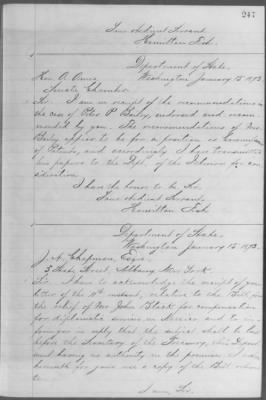 247
Your obedient Servant,
Hamilton Fish.
Department of State,
Washington January 15 1873.
Hon. O. 
Senate Chamber.
Sir. I am in receipt of the recommendations in
the case of P. endorsed and recom
mended by you. The recommendations of Mr.
applies for a position as
of and accordingly I have transmitted
his papers to the Dept. of the Interior for con
sideration.
I have the honor to be, Sir,
Your obedient Servant,
Hamilton Fish
Department of State,
Washington January 15 1873.
J. A. Chapman, Esq.
3 Street, Albany, New York.
Sir. I have to acknowledge the receipt of your
letter of the 11th instant, relative to the Bill for
the relief of Mr. John Black for compensation
for diplomatic services in Mexico and to in
form you in reply that the subject
before the Secretary of the Treasury, this Depart
ment having no authority in the premises. I send
herewith for your use a copy of the Bill
to
I am, Sir,